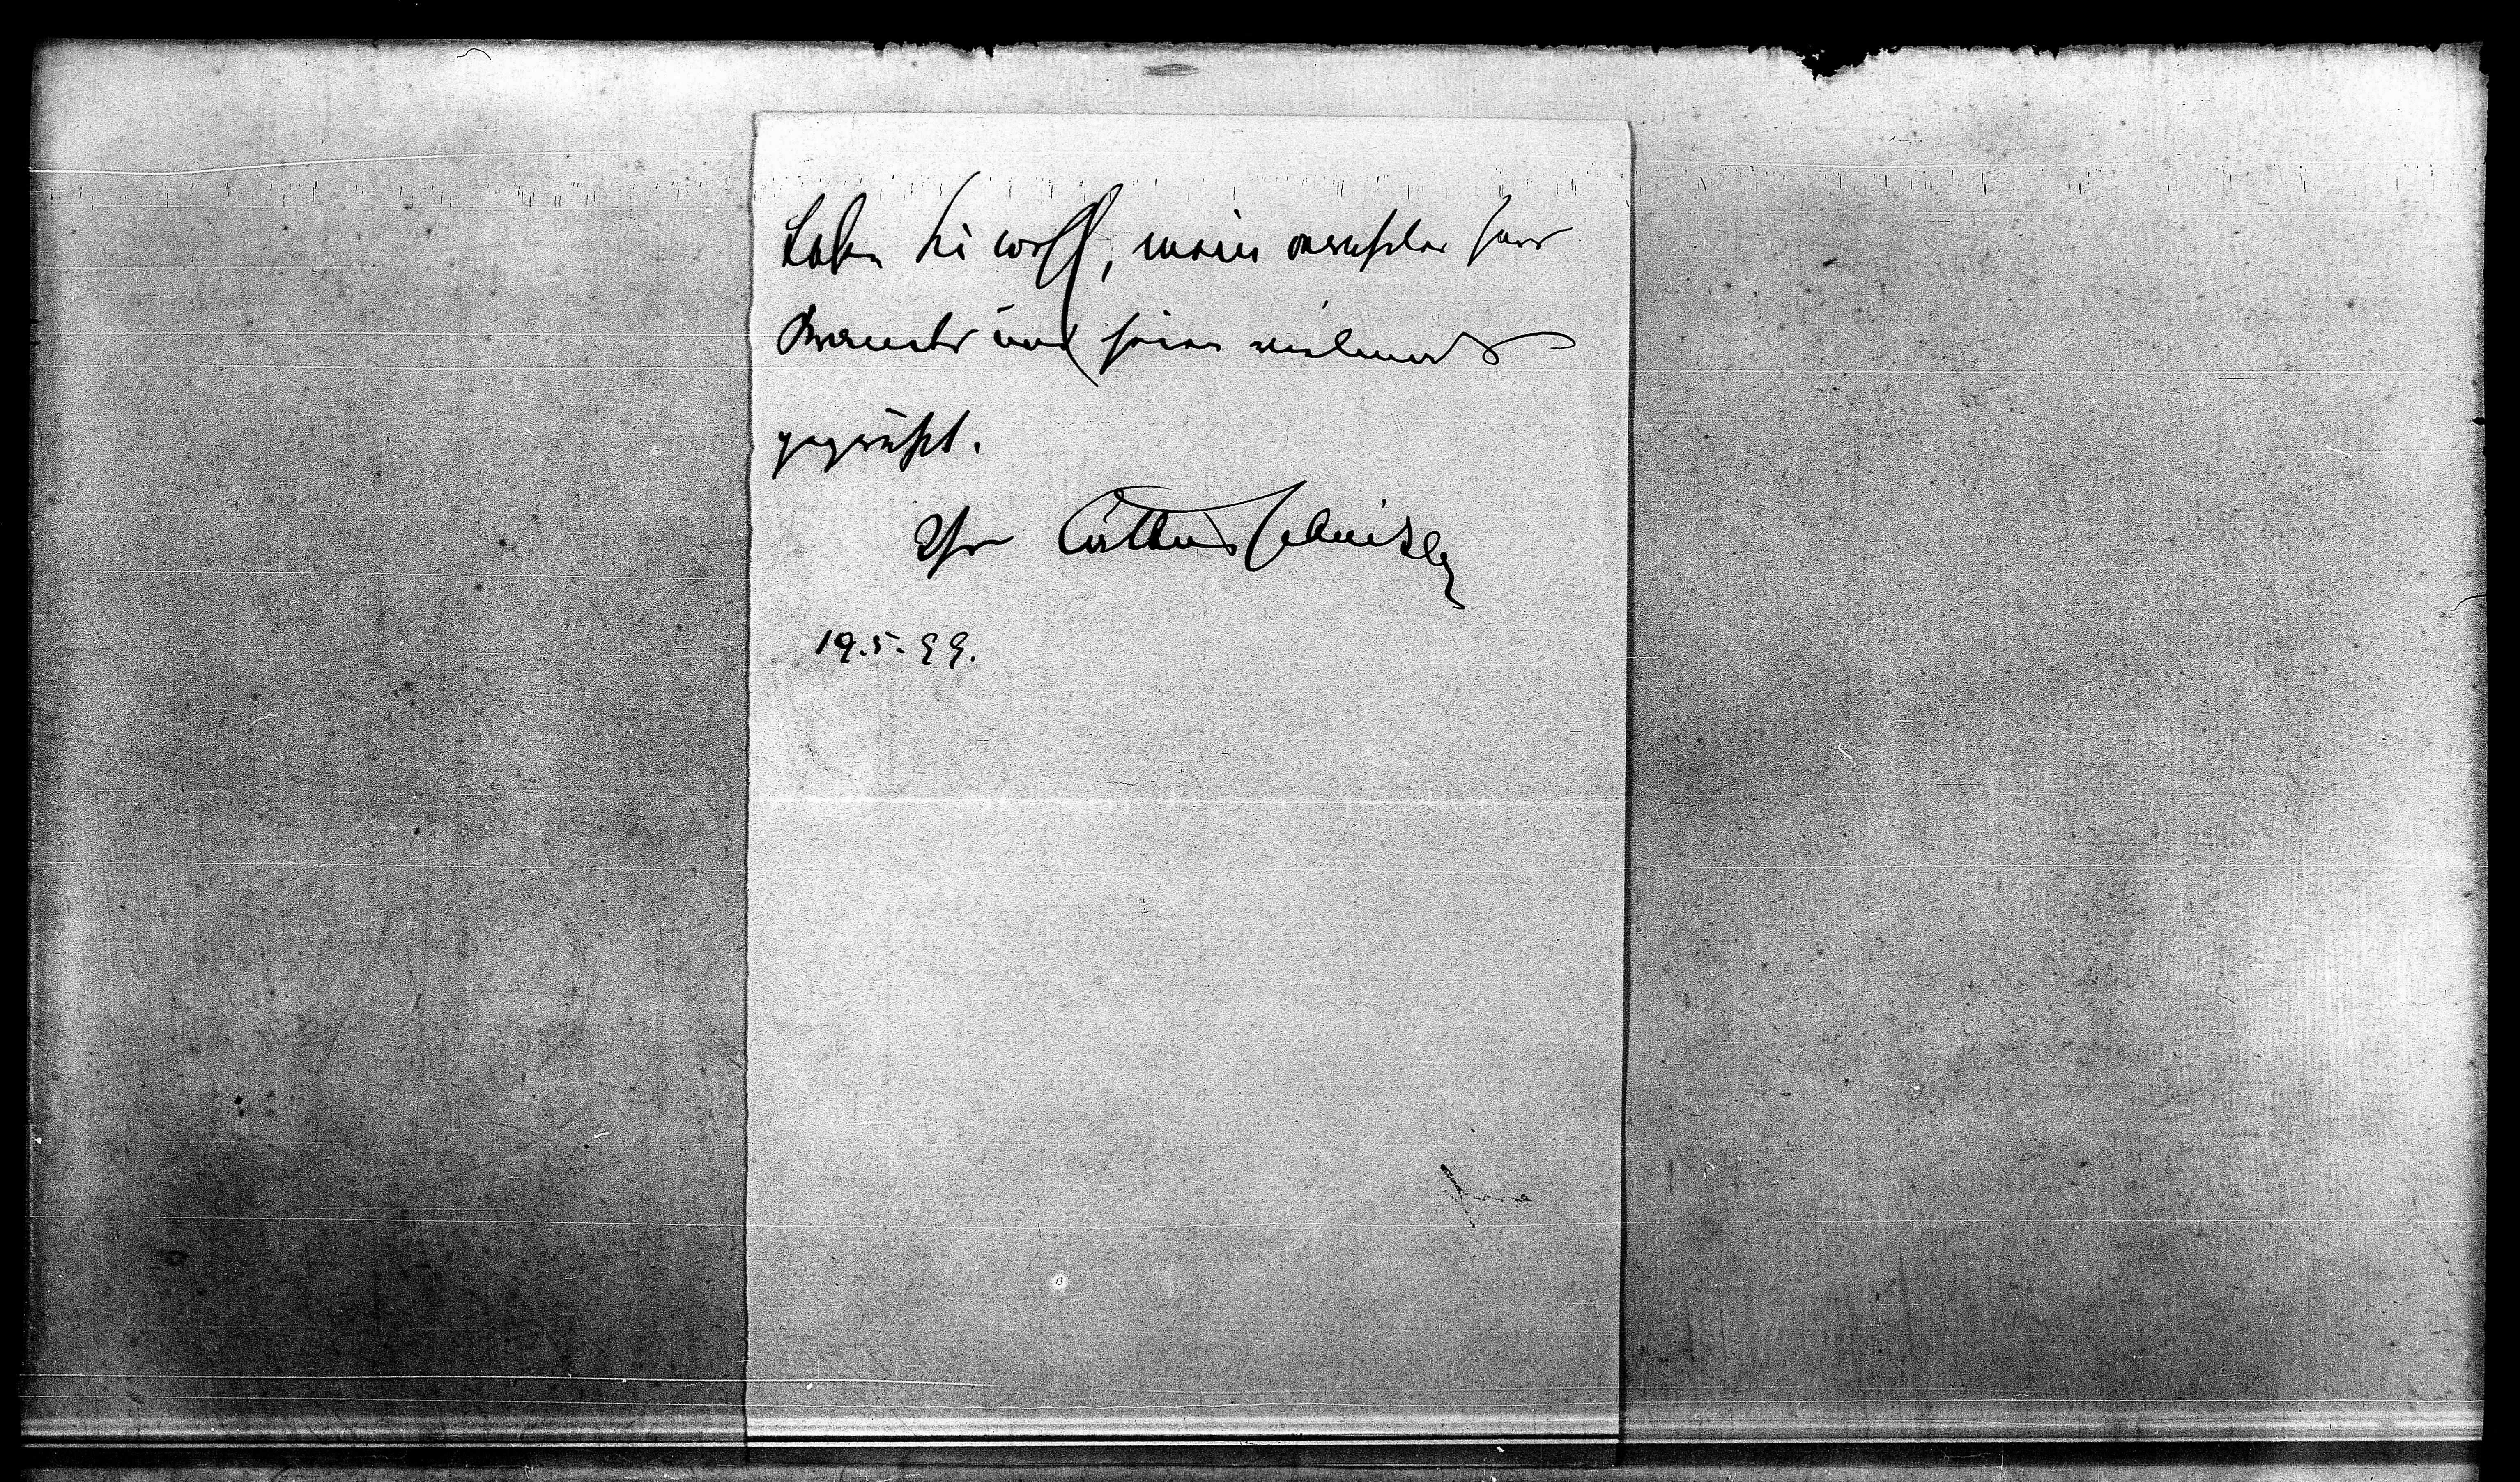 Leben Sie wohl, mein verehrter Herr
Brandes und seien vielmals
gegrüßt.
Ihr Arthur Schnitzler
19.5.99.